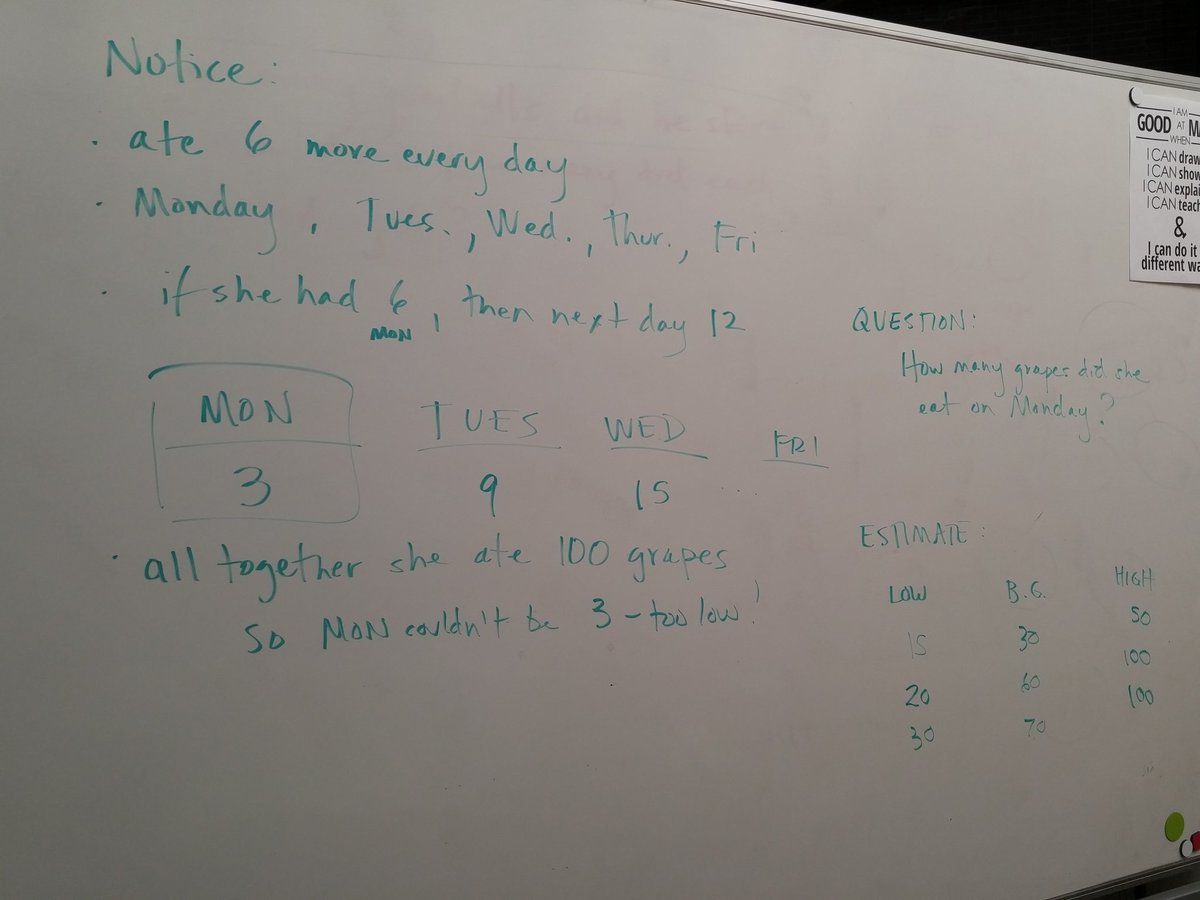 Notice:
· ate 6 more every day
· Monday, Tues., Wed., Thur., Fri
· if she had 6, then next day 12
MON
MON TUES WED FRI
3 9 15 ...
· all together she ate 100 grapes
so MON couldn't be 3 - too low!
QUESTION:
How many grapes did she
eat on Monday?
ESTIMATE:
LOW B.G. HIGH
15 30 50
20 60 100
30 70 100
I AM
GOOD AT
WHEN
I CAN draw
I CAN show
I CAN
I CAN
&
I can do it
different